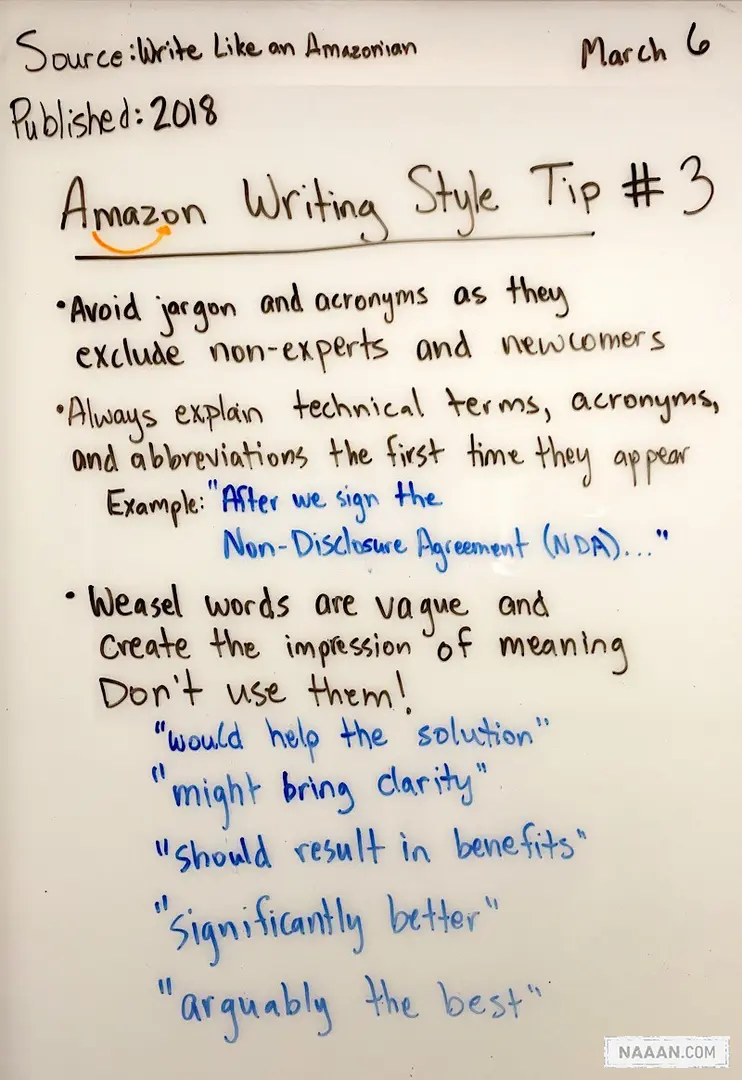 Source: Write Like an Amazonian
March 6
Published: 2018
Amazon Writing Style Tip # 3
• Avoid jargon and acronyms as they
exclude non-experts and newcomers
• Always explain technical terms, acronyms,
and abbreviations the first time they appear
Example: "After we sign the
Non-Disclosure Agreement (NDA)..."
• Weasel words are vague and
create the impression of meaning
Don't use them!
"would help the solution"
"might bring clarity"
"should result in benefits"
"significantly better"
"arguably the best"
NAAAN.COM